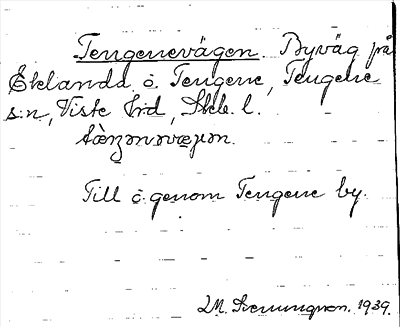 Tengenevägen. Byväg på
Eklanda o. Tengene, Tengene
s:n, Viste hrd, Skb. l.
Till o. genom Tengene by.
1939.